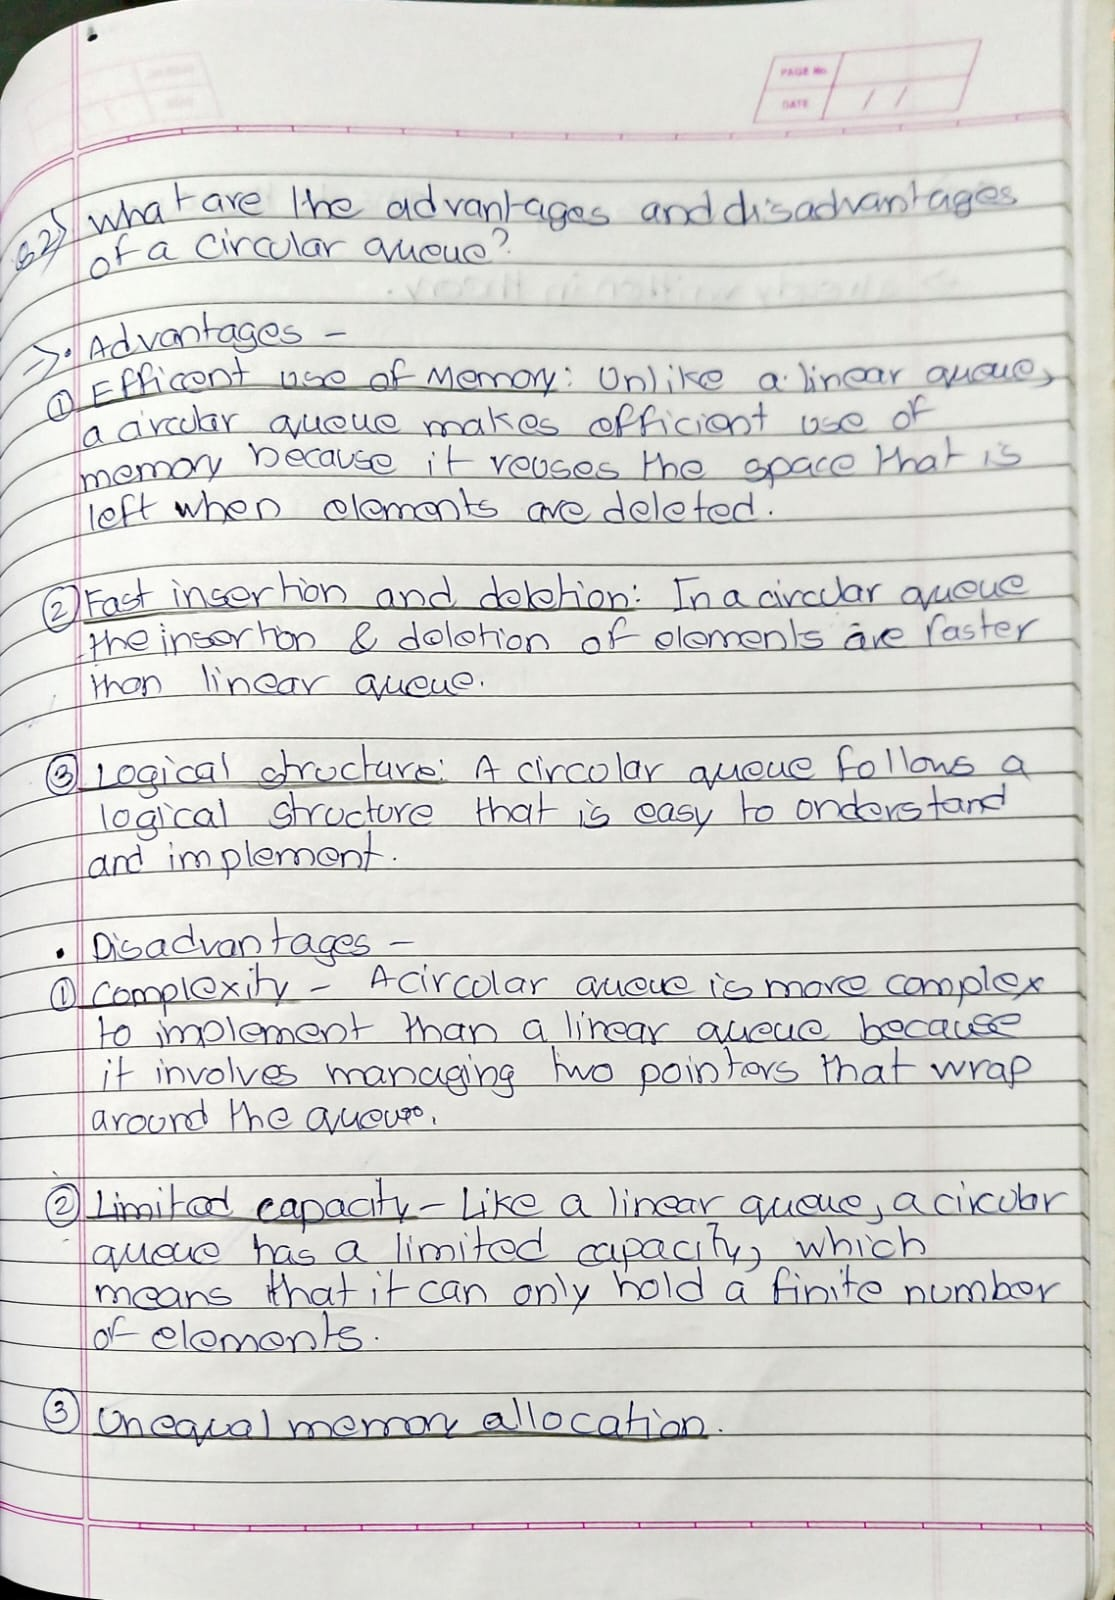 PAGE No.
DATE / /
Q2) What are the advantages and disadvantages
of a circular queue?
→ • Advantages –
① Efficent use of Memory: Unlike a linear queue,
a circular queue makes efficient use of
memory because it reuses the space that is
left when elements are deleted.
② Fast insertion and deletion: In a circular queue
the insertion & deletion of elements are faster
than linear queue.
③ Logical structure: A circular queue follows a
logical structure that is easy to understand
and implement.
• Disadvantages –
① Complexity – A circular queue is more complex
to implement than a linear queue because
it involves managing two pointers that wrap
around the queue.
② Limited capacity – Like a linear queue, a circular
queue has a limited capacity, which
means that it can only hold a finite number
of elements.
③ Unequal memory allocation.